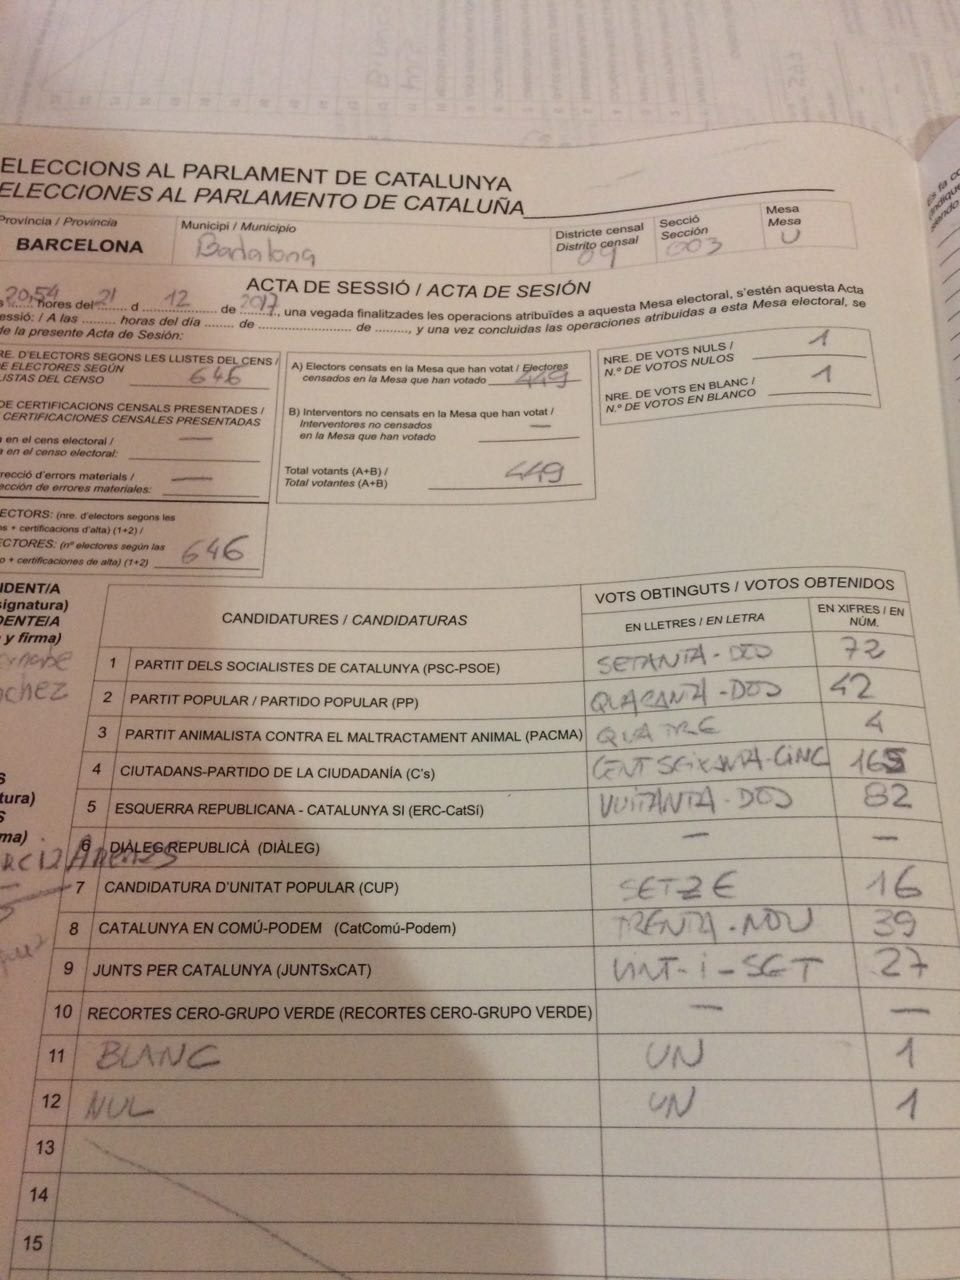 ELECCIONS AL PARLAMENT DE CATALUNYA
ELECCIONES AL PARLAMENTO DE CATALUÑA
Província / Provincia
BARCELONA
Municipi / Municipio
Badalona
Districte censal
Distrito censal
09
Secció
Sección
003
Mesa
Mesa
U
ACTA DE SESSIÓ / ACTA DE SESIÓN
20,54 hores del 21 d 12 de 2017, una vegada finalitzades les operacions atribuïdes a aquesta Mesa electoral, s'estén aquesta Acta
sessió: / A las ........ horas del día ........ de ........................ de ........, y una vez concluidas las operaciones atribuidas a esta Mesa electoral, se
de la presente Acta de Sesión:
NRE. D'ELECTORS SEGONS LES LLISTES DEL CENS /
DE ELECTORES SEGÚN
LISTAS DEL CENSO 646
DE CERTIFICACIONS CENSALS PRESENTADES /
CERTIFICACIONES CENSALES PRESENTADAS
en el cens electoral / —
en el censo electoral:
correcció d'errors materials / —
corrección de errores materiales:
ELECTORS: (nre. d'electors segons les
+ certificacions d'alta) (1+2) /
ELECTORES: (nº electores según las 646
+ certificaciones de alta) (1+2)
A) Electors censats en la Mesa que han votat / Electores
censados en la Mesa que han votado 449
B) Interventors no censats en la Mesa que han votat /
Interventores no censados —
en la Mesa que han votado
Total votants (A+B) /
Total votantes (A+B) 449
NRE. DE VOTS NULS / 1
N.º DE VOTOS NULOS
NRE. DE VOTS EN BLANC / 1
N.º DE VOTOS EN BLANCO
IDENT/A
signatura)
DENTE/A
y firma)
CANDIDATURES / CANDIDATURAS
VOTS OBTINGUTS / VOTOS OBTENIDOS
EN LLETRES / EN LETRA
EN XIFRES / EN
NÚM.
1 PARTIT DELS SOCIALISTES DE CATALUNYA (PSC-PSOE) SETANTA-DOS 72
2 PARTIT POPULAR / PARTIDO POPULAR (PP) QUARANTA-DOS 42
3 PARTIT ANIMALISTA CONTRA EL MALTRACTAMENT ANIMAL (PACMA) QUATRE 4
4 CIUTADANS-PARTIDO DE LA CIUDADANÍA (C's) CENT SEIXANTA-CINC 165
5 ESQUERRA REPUBLICANA - CATALUNYA SI (ERC-CatSí) VUITANTA-DOS 82
6 DIÀLEG REPUBLICÀ (DIÀLEG) — —
7 CANDIDATURA D'UNITAT POPULAR (CUP) SETZE 16
8 CATALUNYA EN COMÚ-PODEM (CatComú-Podem) TRENTA-NOU 39
9 JUNTS PER CATALUNYA (JUNTSxCAT) VINT-I-SET 27
10 RECORTES CERO-GRUPO VERDE (RECORTES CERO-GRUPO VERDE) — —
11 BLANC UN 1
12 NUL UN 1
13
14
15